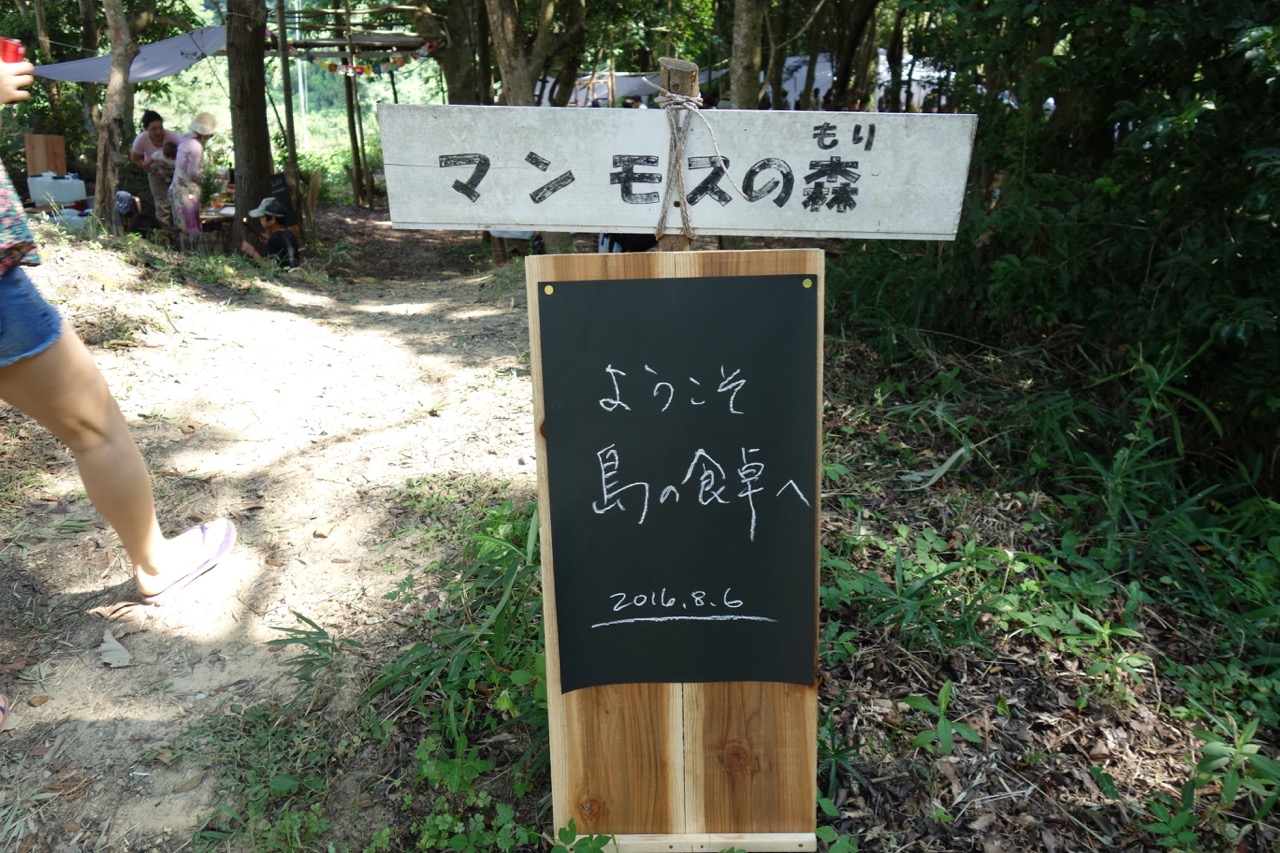 もり
マンモスの森
ようこそ
島の食卓へ
2016.8.6